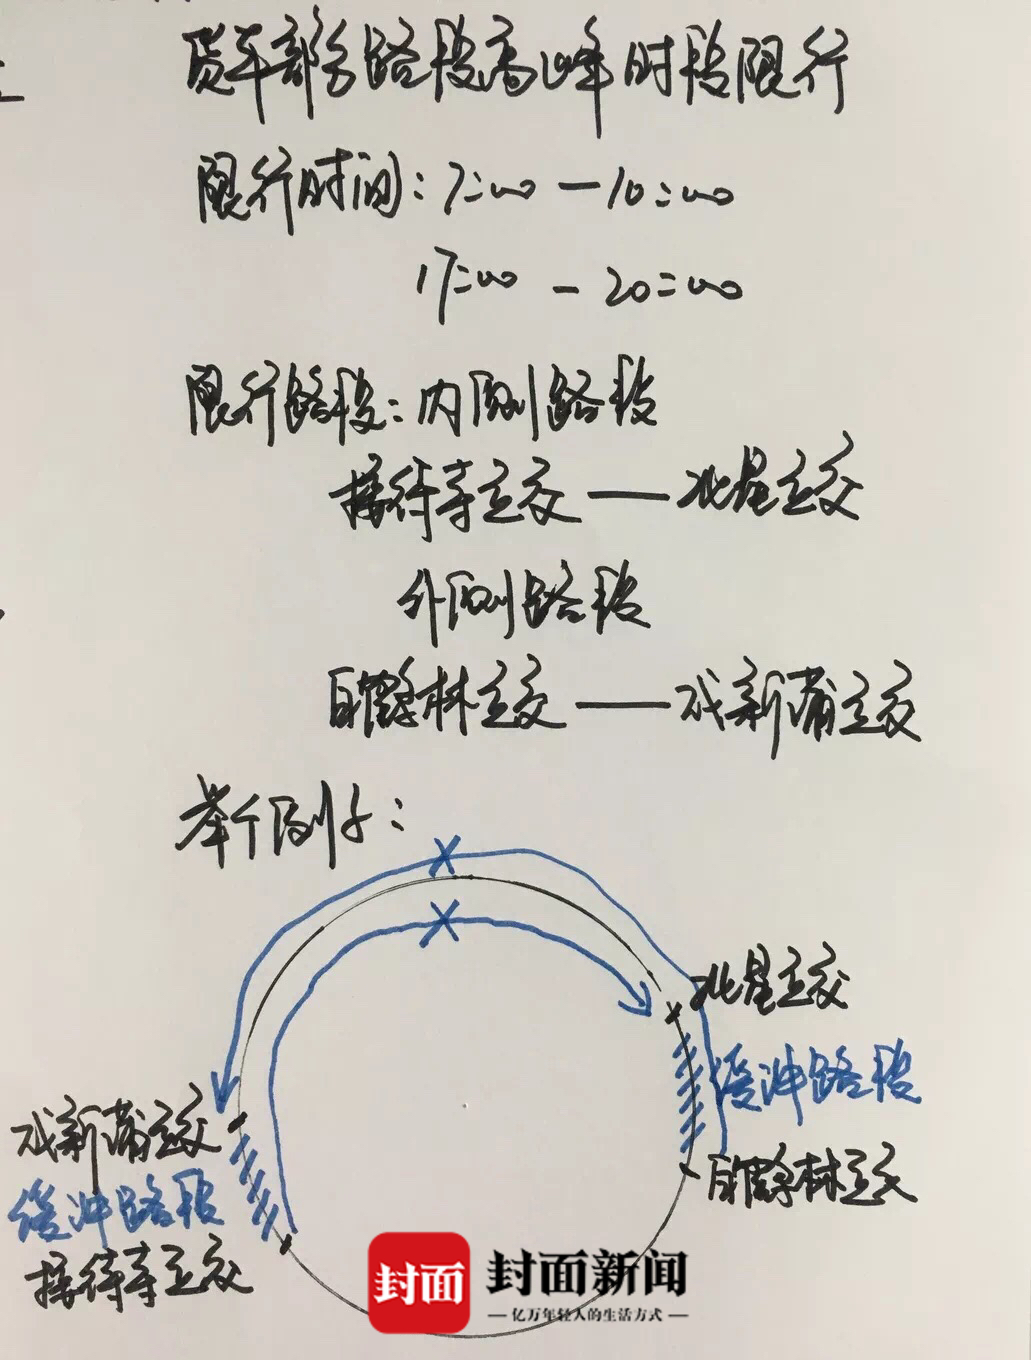 货车部分路段高峰时段限行
限行时间：7:00 — 10:00
17:00 — 20:00
限行路段：内侧路段
接待寺立交 —— 北星立交
外侧路段
白鹤林立交 —— 成新蒲立交
举个例子：
北星立交
缓冲路段
成新蒲立交
白鹤林立交
缓冲路段
接待寺立交
封面 封面新闻
— 亿万年轻人的生活方式 —